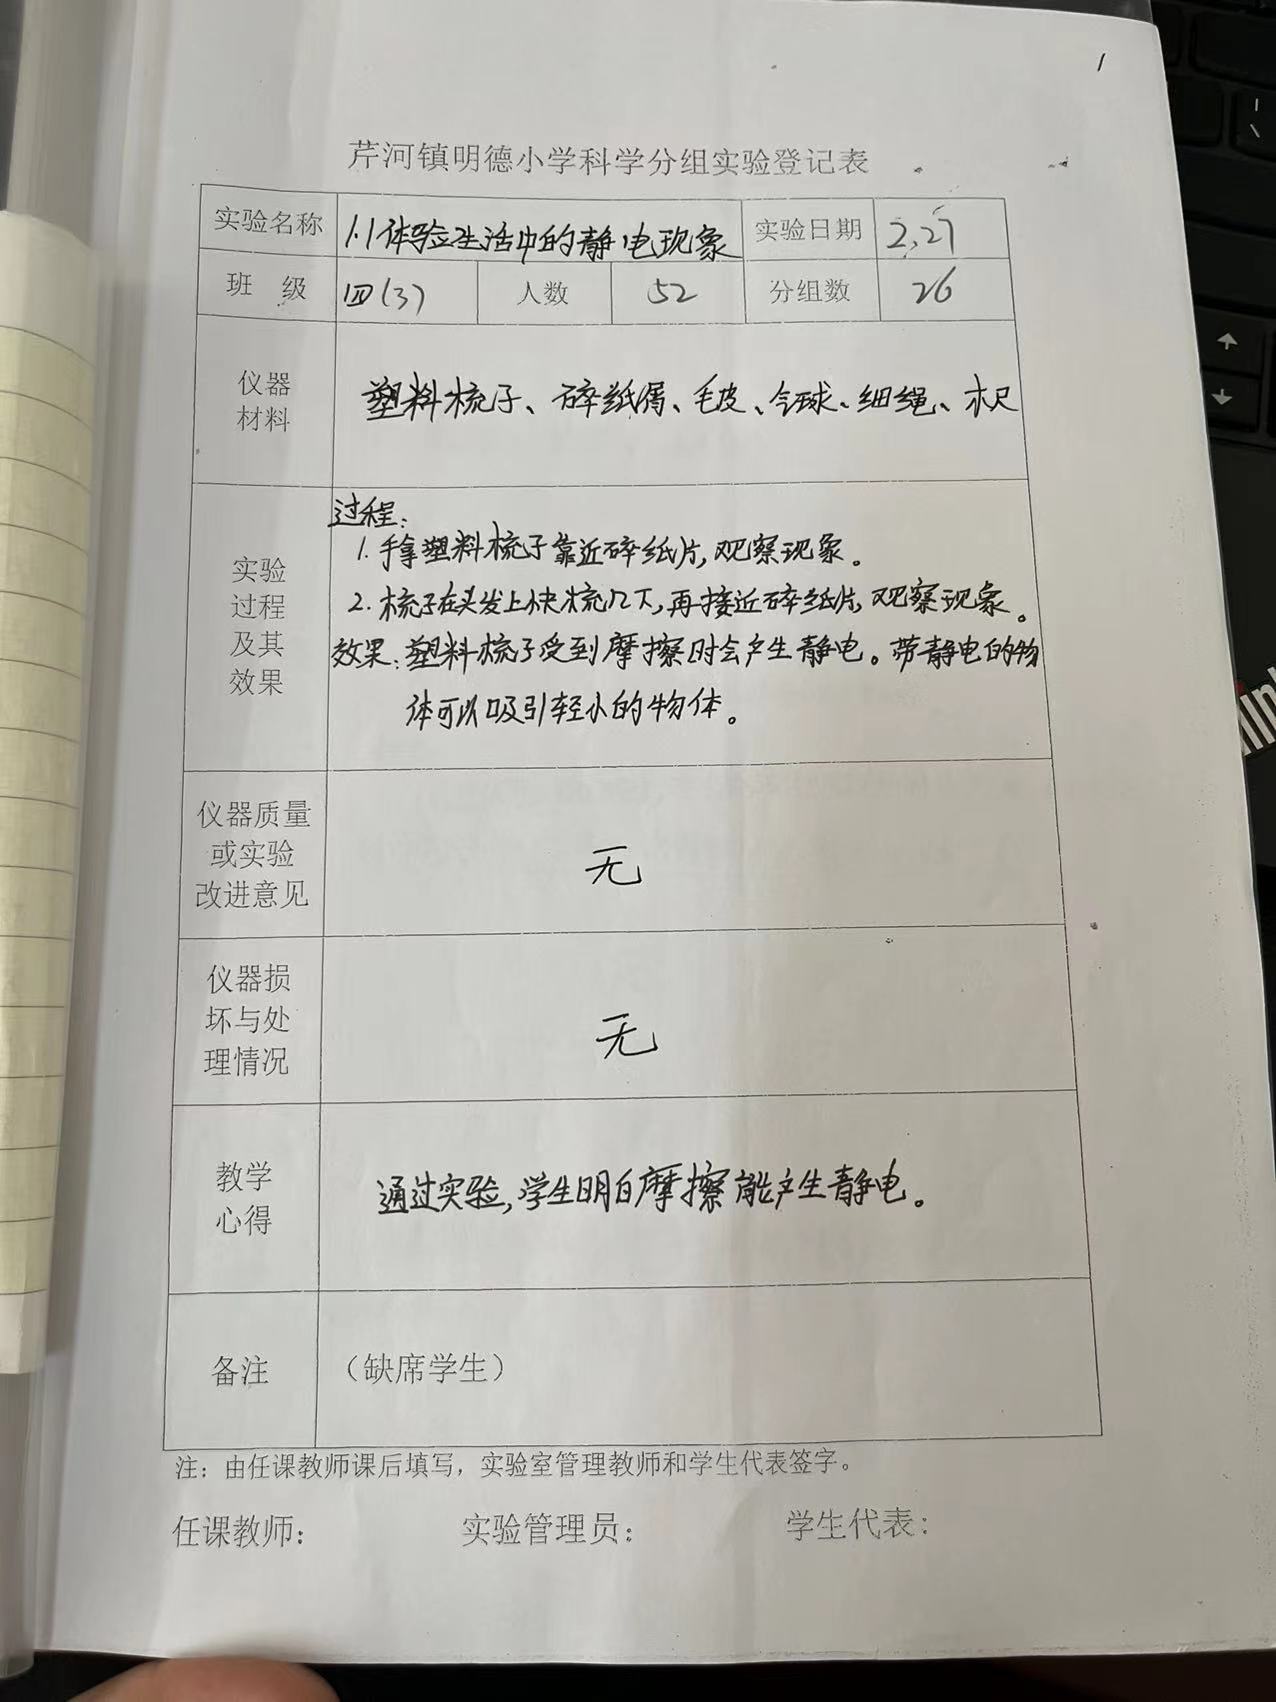 1
芹河镇明德小学科学分组实验登记表
实验名称 1.1体验生活中的静电现象 实验日期 2.27
班 级 四(3) 人数 52 分组数 26
仪器
材料
塑料梳子、碎纸屑、毛皮、气球、细绳、木尺
实验
过程
及其
效果
过程:
1. 手拿塑料梳子靠近碎纸片,观察现象。
2. 梳子在头发上快梳几下,再接近碎纸片,观察现象。
效果:塑料梳子受到摩擦时会产生静电。带静电的物
体可以吸引轻小的物体。
仪器质量
或实验
改进意见
无
仪器损
坏与处
理情况
无
教学
心得
通过实验,学生明白摩擦能产生静电。
备注 (缺席学生)
注:由任课教师课后填写,实验室管理教师和学生代表签字。
任课教师: 实验管理员: 学生代表: